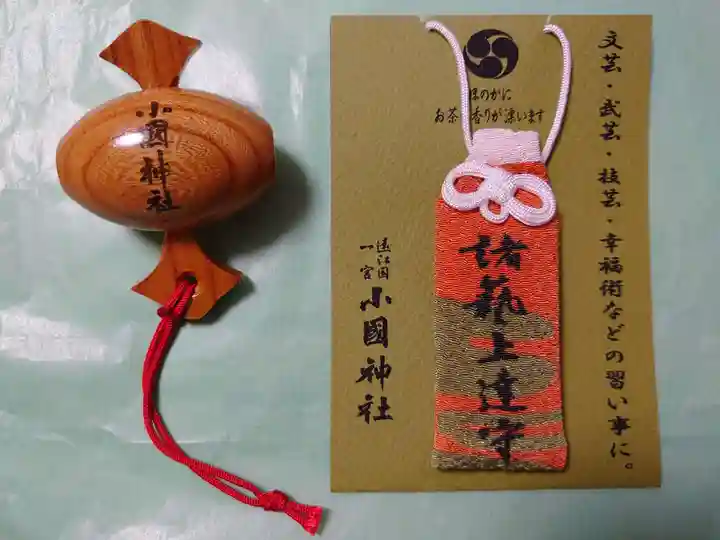 小國神社
ほのかに
お茶 香りが漂います
文芸・武芸・技芸・幸福術などの習い事に。
諸藝上達守
遠江国
一宮
小國神社